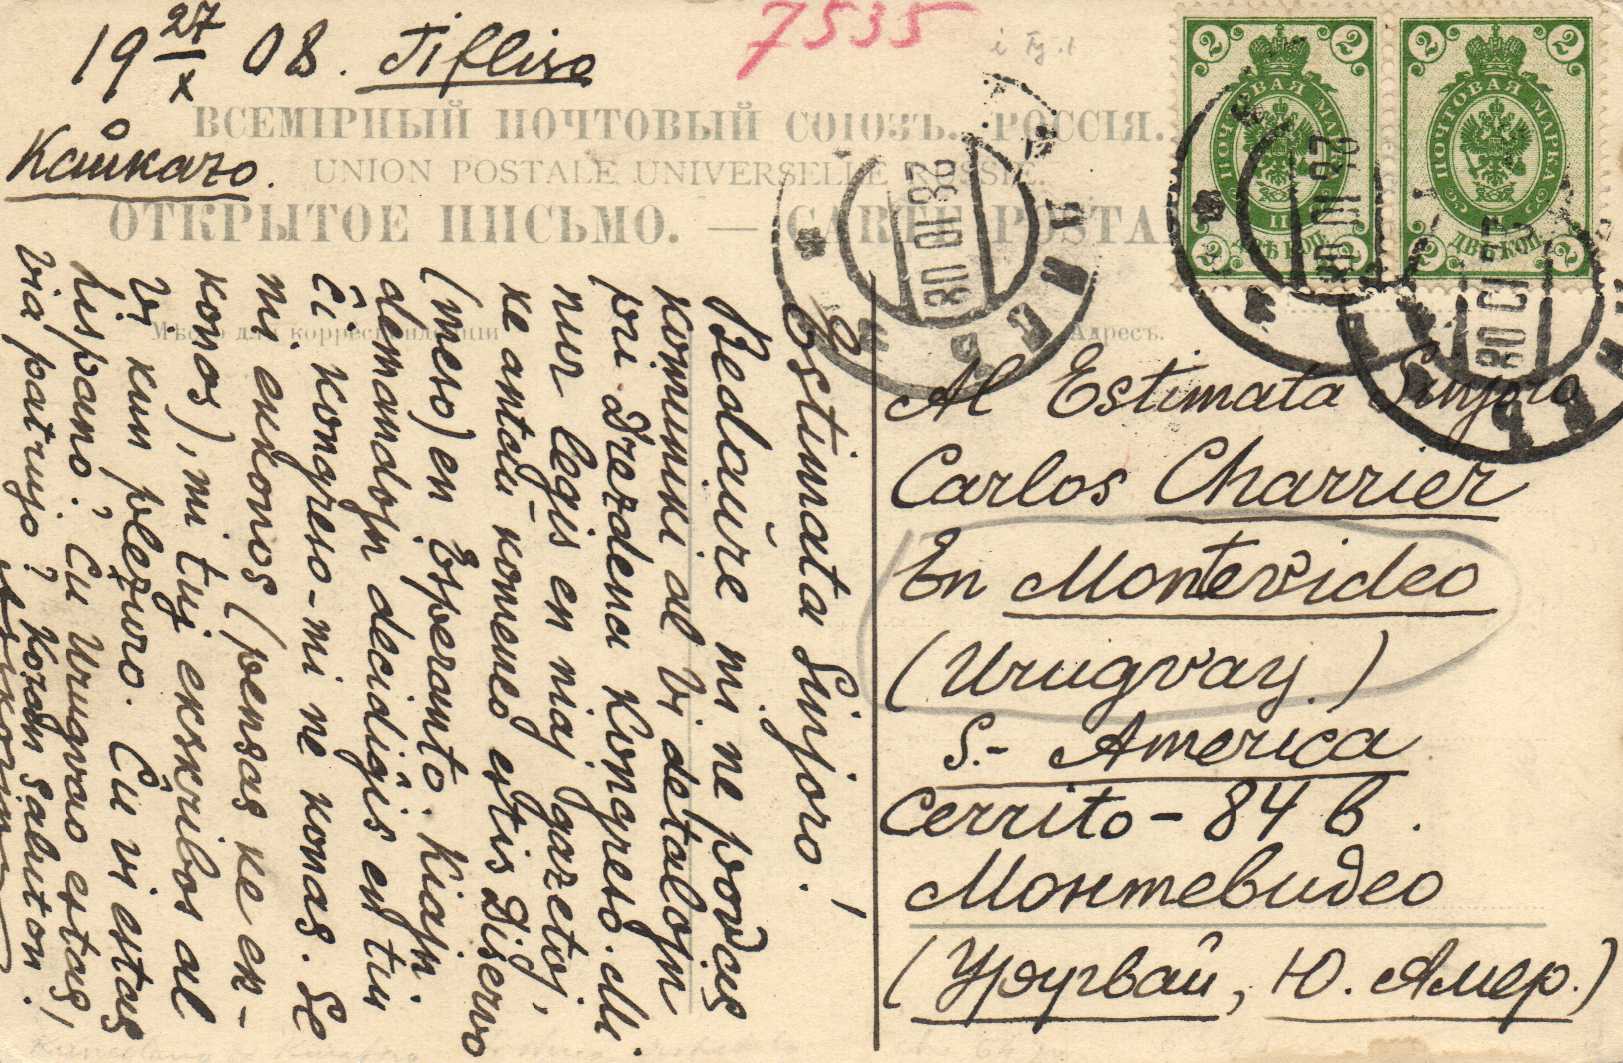 19 27/X 08. Tifliso
Kaŭkazo.
7535
ВСЕМІРНЫЙ ПОЧТОВЫЙ СОЮЗЪ. РОССІЯ.
UNION POSTALE UNIVERSELLE RUSSIE.
ОТКРЫТОЕ ПИСЬМО. — CARTE POSTA
Мѣсто для корреспонденціи
Адресъ.
2 2
ПОЧТОВАЯ МАРКА
ДВѢ КОП.
2 2
2 2
ПОЧТОВАЯ МАРКА
ДВѢ КОП.
2 2
Estimata Sinjoro!
Bedaŭre mi ne povas
komuniki al Vi detalojn
pri Drezdena Kongreso. Mi
nur legis en niaj gazetoj,
ke antaŭ komenco estis Diservo
(meso) en Esperanto. Kiajn
demandojn decidiĝis en tiu
ĉi kongreso - mi ne konas. Se
mi enkonos (pensas ke en-
konos), mi tuj ekskribos al
Vi kun plezuro. Ĉu vi estas
hispano, Ĉu Urugvao estas
via patrujo? Koran saluton.
Al Estimata Sinjoro
Carlos Charrier
En Montevideo
(Urugvay.)
S.- America
Cerrito - 84 b.
Монтевидео
(Уругвай, Ю. Амер.)